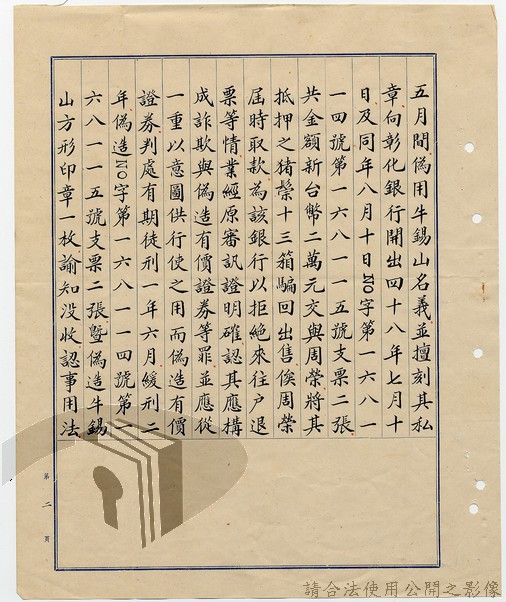 五月間偽用牛錫山名義並擅刻其私
章向彰化銀行開出四十八年七月十
日及同年八月十日NO字第一六八一
一四號第一六八一一五號支票二張
共金額新台幣二萬元交與周榮將其
抵押之猪鬃十三箱騙回出售俟周榮
屆時取款為該銀行以拒絕來往户退
票等情業經原審訊證明確認其應構
成詐欺與偽造有價證券等罪並應從
一重以意圖供行使之用而偽造有價
證券判處有期徒刑一年六月緩刑二
年偽造NO字第一六八一一四號第一
六八一一五號支票二張暨偽造牛錫
山方形印章一枚諭知没收認事用法
第二頁
請合法使用公開之影像